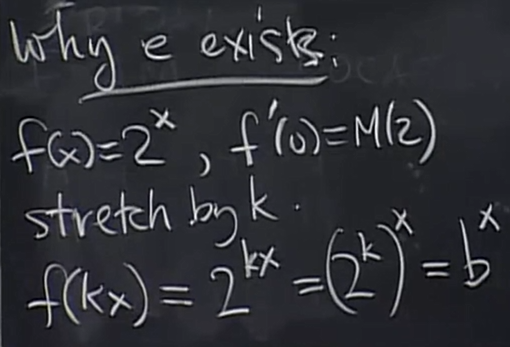 Why e exists:
f(x)=2^x, f'(0)=M(2)
stretch by k.
f(kx) = 2^{kx} = (2^k)^x = b^x